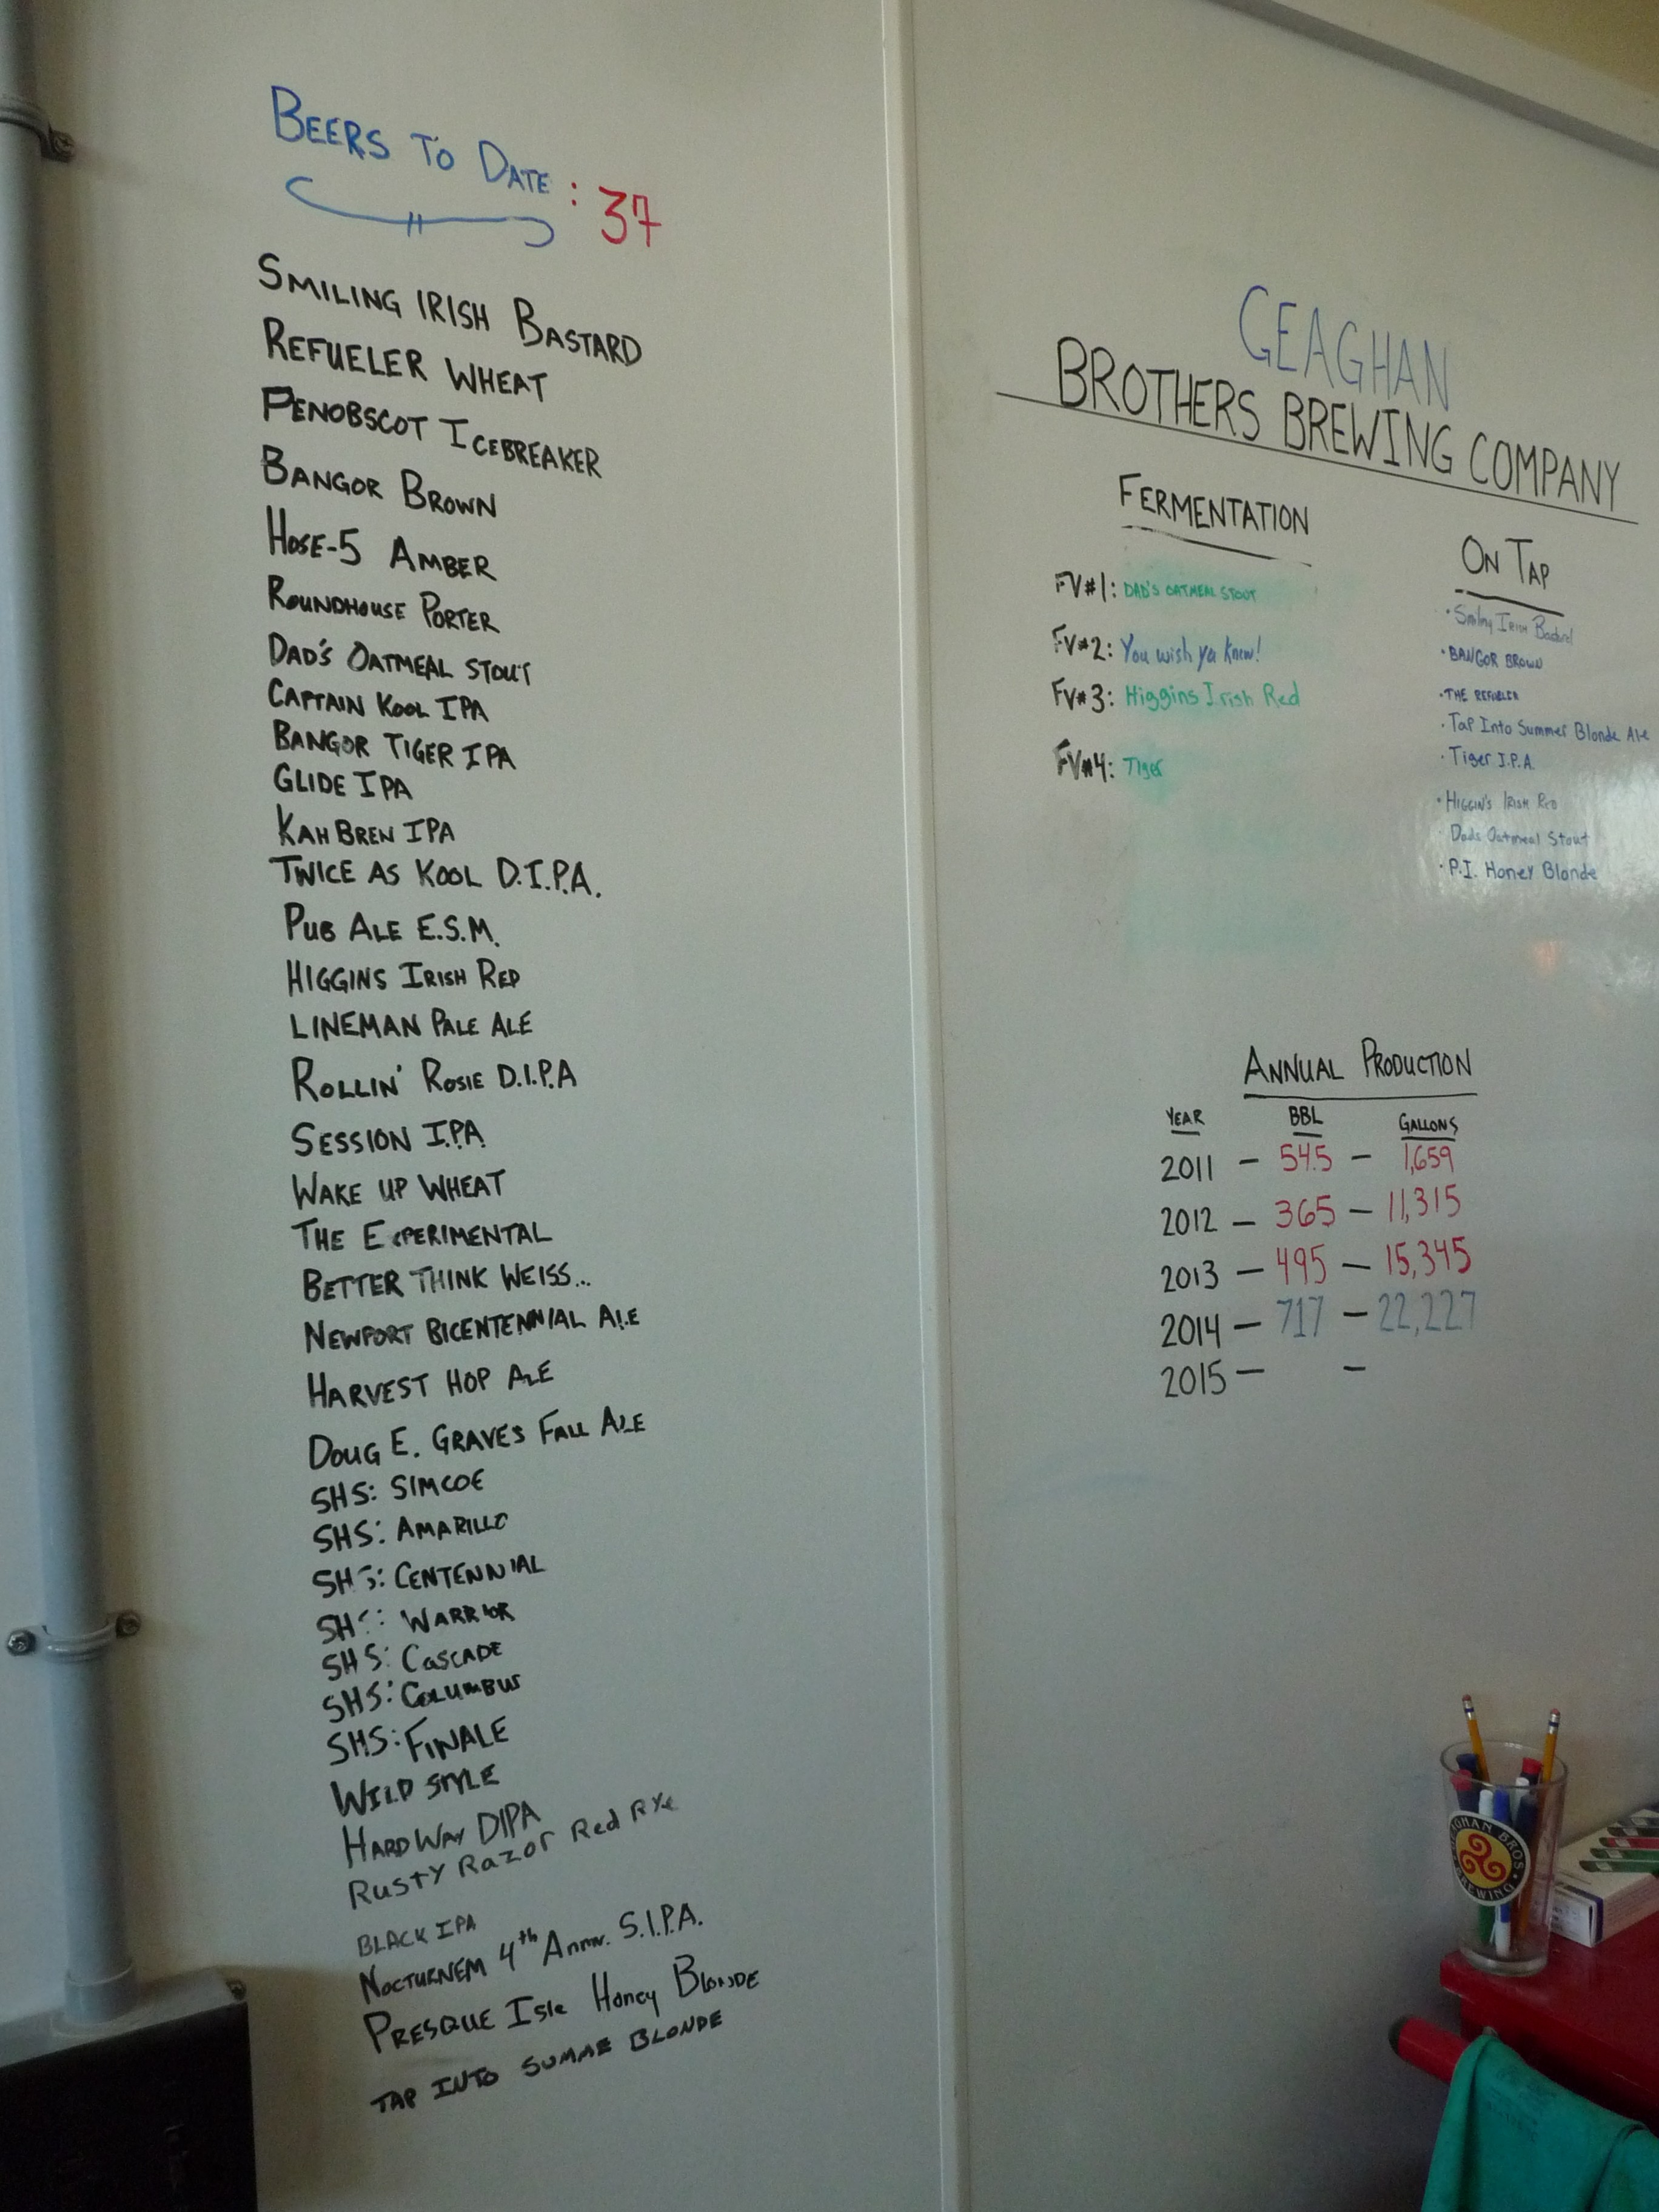 BEERS TO DATE : 37
SMILING IRISH BASTARD
REFUELER WHEAT
PENOBSCOT ICEBREAKER
BANGOR BROWN
HOSE-5 AMBER
ROUNDHOUSE PORTER
DAD'S OATMEAL STOUT
CAPTAIN KOOL IPA
BANGOR TIGER IPA
GLIDE IPA
KAH BREN IPA
TWICE AS KOOL D.I.P.A.
PUB ALE E.S.M.
HIGGINS IRISH RED
LINEMAN PALE ALE
ROLLIN' ROSIE D.I.P.A
SESSION I.P.A
WAKE UP WHEAT
THE EXPERIMENTAL
BETTER THINK WEISS...
NEWPORT BICENTENNIAL ALE
HARVEST HOP ALE
DOUG E. GRAVES FALL ALE
SHS: SIMCOE
SHS: AMARILLO
SHS: CENTENNIAL
SHS: WARRIOR
SHS: CASCADE
SHS: COLUMBUS
SHS: FINALE
WILD STYLE
HARD WAY DIPA
Rusty Razor Red Rye
BLACK IPA
NOCTURNEM 4th Anniv. S.I.P.A.
PRESQUE Isle Honey BLONDE
TAP INTO SUMME BLONDE
GEAGHAN
BROTHERS BREWING COMPANY
FERMENTATION
FV#1: DAD'S OATMEAL STOUT
FV#2: You wish ya knew!
FV#3: Higgins Irish Red
FV#4: Tiger
ON TAP
· Smiling Irish Bastard
· BANGOR BROWN
· THE REFUELER
· Tap Into Summer Blonde Ale
· Tiger I.P.A.
· HIGGIN'S IRISH RED
· Dads Oatmeal Stout
· P.I. Honey Blonde
ANNUAL PRODUCTION
YEAR BBL GALLONS
2011 – 54.5 – 1,659
2012 – 365 – 11,315
2013 – 495 – 15,345
2014 – 717 – 22,227
2015 – –
GEAGHAN BROS
BREWING